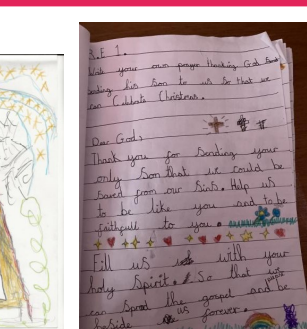 R.E 1.
Write your own prayer thanking God for
sending his Son to us so that we
can Celibate Christmas.
Dear God,
Thank you for Sending your
only Son that we could be
Saved from our Sins. Help us
to be like you and to be
faithfull to you.
Fill us with your
holy Spirit. So that
can spread the gospel and be
beside us forever.